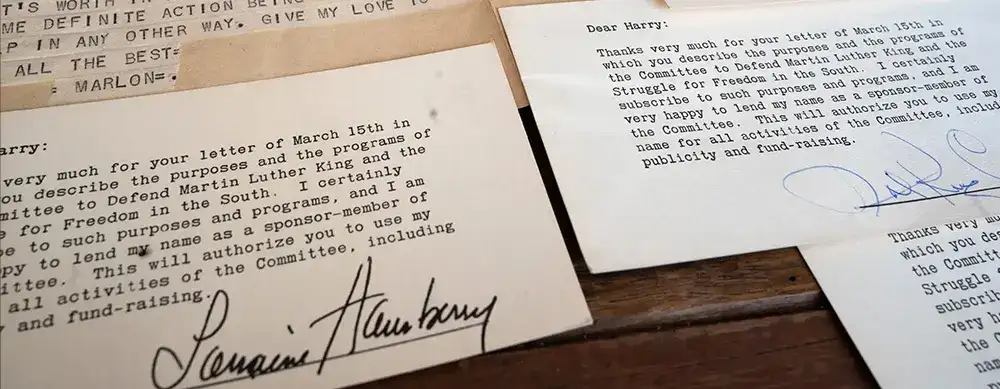 T'S WORTH
ME DEFINITE ACTION BEING
P IN ANY OTHER WAY. GIVE MY LOVE TO
ALL THE BEST=
= MARLON=.
arry:
very much for your letter of March 15th in
ou describe the purposes and the programs of
mmittee to Defend Martin Luther King and the
e for Freedom in the South. I certainly
be to such purposes and programs, and I am
ppy to lend my name as a sponsor-member of
ittee. This will authorize you to use my
all activities of the Committee, including
and fund-raising.
Lorraine Hansberry
Dear Harry:
Thanks very much for your letter of March 15th in
which you describe the purposes and the programs of
the Committee to Defend Martin Luther King and the
Struggle for Freedom in the South. I certainly
subscribe to such purposes and programs, and I am
very happy to lend my name as a sponsor-member of
the Committee. This will authorize you to use my
name for all activities of the Committee, includ
publicity and fund-raising.
Thanks very mu
which you des
the Committ
Struggle f
subscrib
very h
the C
nam